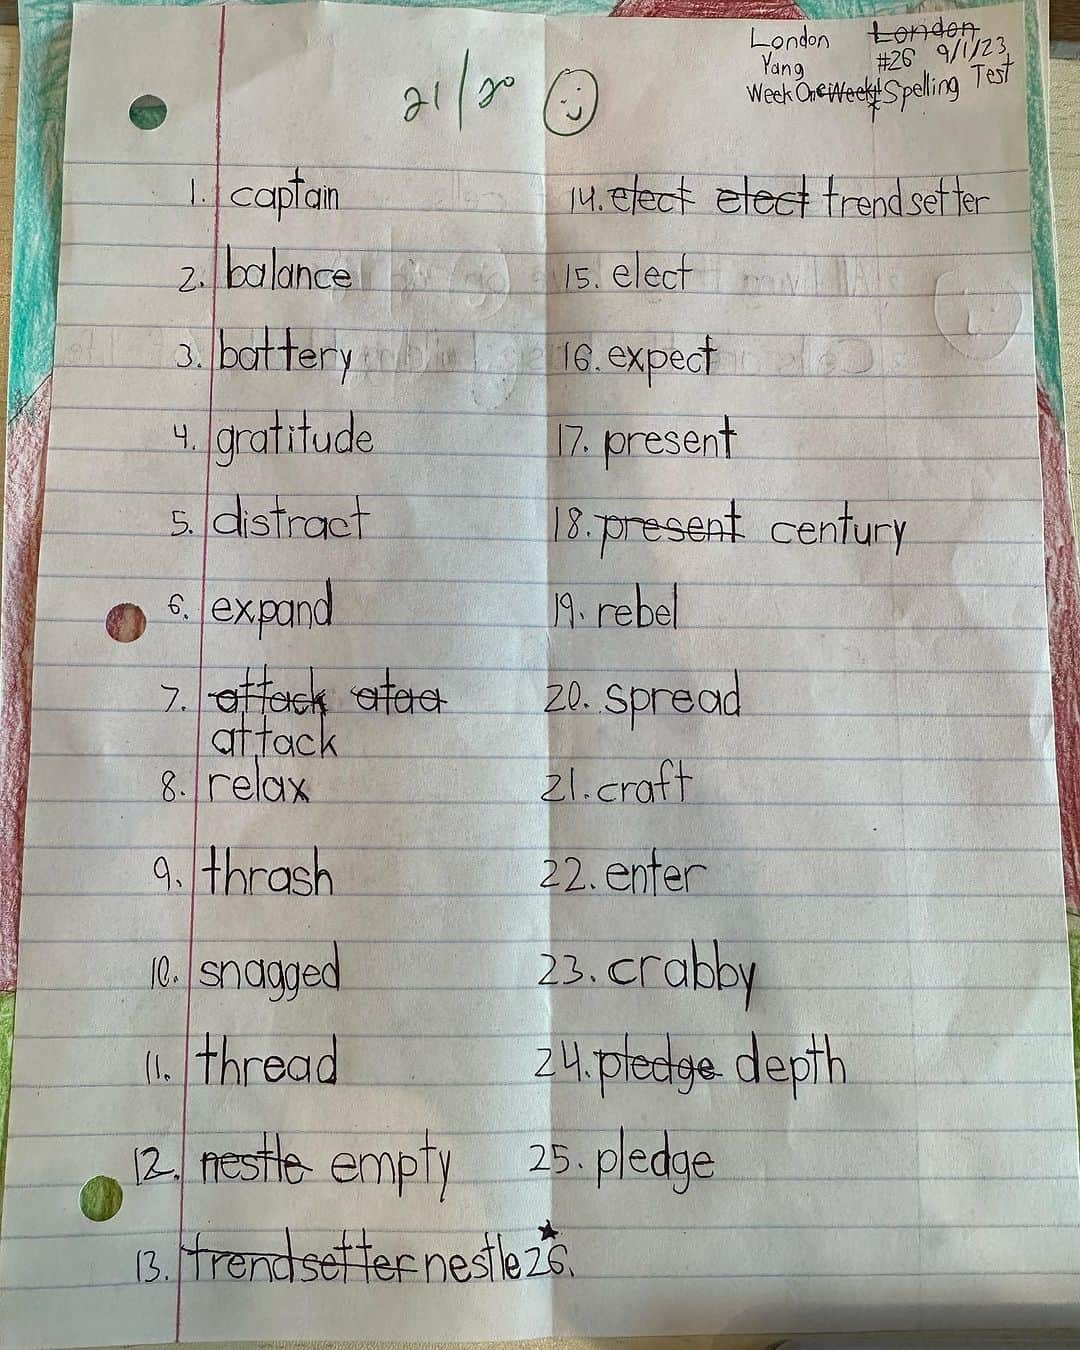 London London
Yang #26 9/1/23
Week One Weekly Spelling Test
21/20
1. captain
2. balance
3. battery
4. gratitude
5. distract
6. expand
7. attack ataa
attack
8. relax
9. thrash
10. snagged
11. thread
12. nestle empty
13. trendsetter nestle
14. elect elect trendsetter
15. elect
16. expect
17. present
18. present century
19. rebel
20. spread
21. craft
22. enter
23. crabby
24. pledge depth
25. pledge
26.